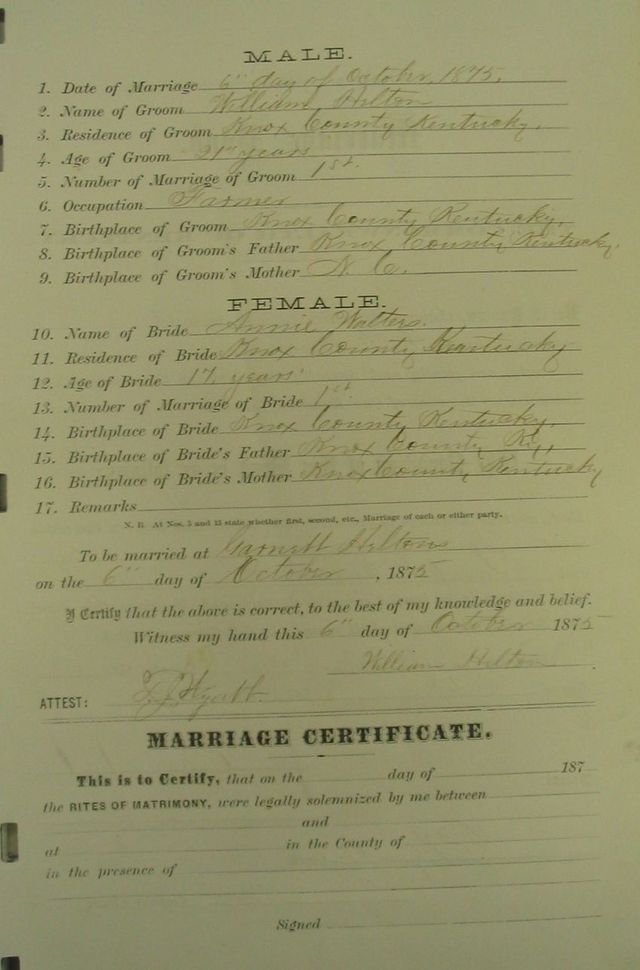 MALE.
1. Date of Marriage 6" day of October, 1875.
2. Name of Groom William Hilton
3. Residence of Groom Knox County Kentucky.
4. Age of Groom 21 years
5. Number of Marriage of Groom 1st.
6. Occupation Farmer
7. Birthplace of Groom Knox County Kentucky.
8. Birthplace of Groom's Father Knox County Kentucky.
9. Birthplace of Groom's Mother N. C.
FEMALE.
10. Name of Bride Annie Walters.
11. Residence of Bride Knox County Kentucky
12. Age of Bride 17 years
13. Number of Marriage of Bride 1st.
14. Birthplace of Bride Knox County Kentucky.
15. Birthplace of Bride's Father Knox County Ky,
16. Birthplace of Bride's Mother Knox County Kentucky
17. Remarks
N. B. At Nos. 5 and 13 state whether first, second, etc., Marriage of each or either party.
To be married at Garnett Hiltons
on the 6" day of October, 1875
I Certify that the above is correct, to the best of my knowledge and belief.
Witness my hand this 6" day of October 1875
William Hilton
ATTEST: Wyatt
MARRIAGE CERTIFICATE.
This is to Certify, that on the day of 187
the RITES OF MATRIMONY, were legally solemnized by me between
and
at in the County of
in the presence of
Signed